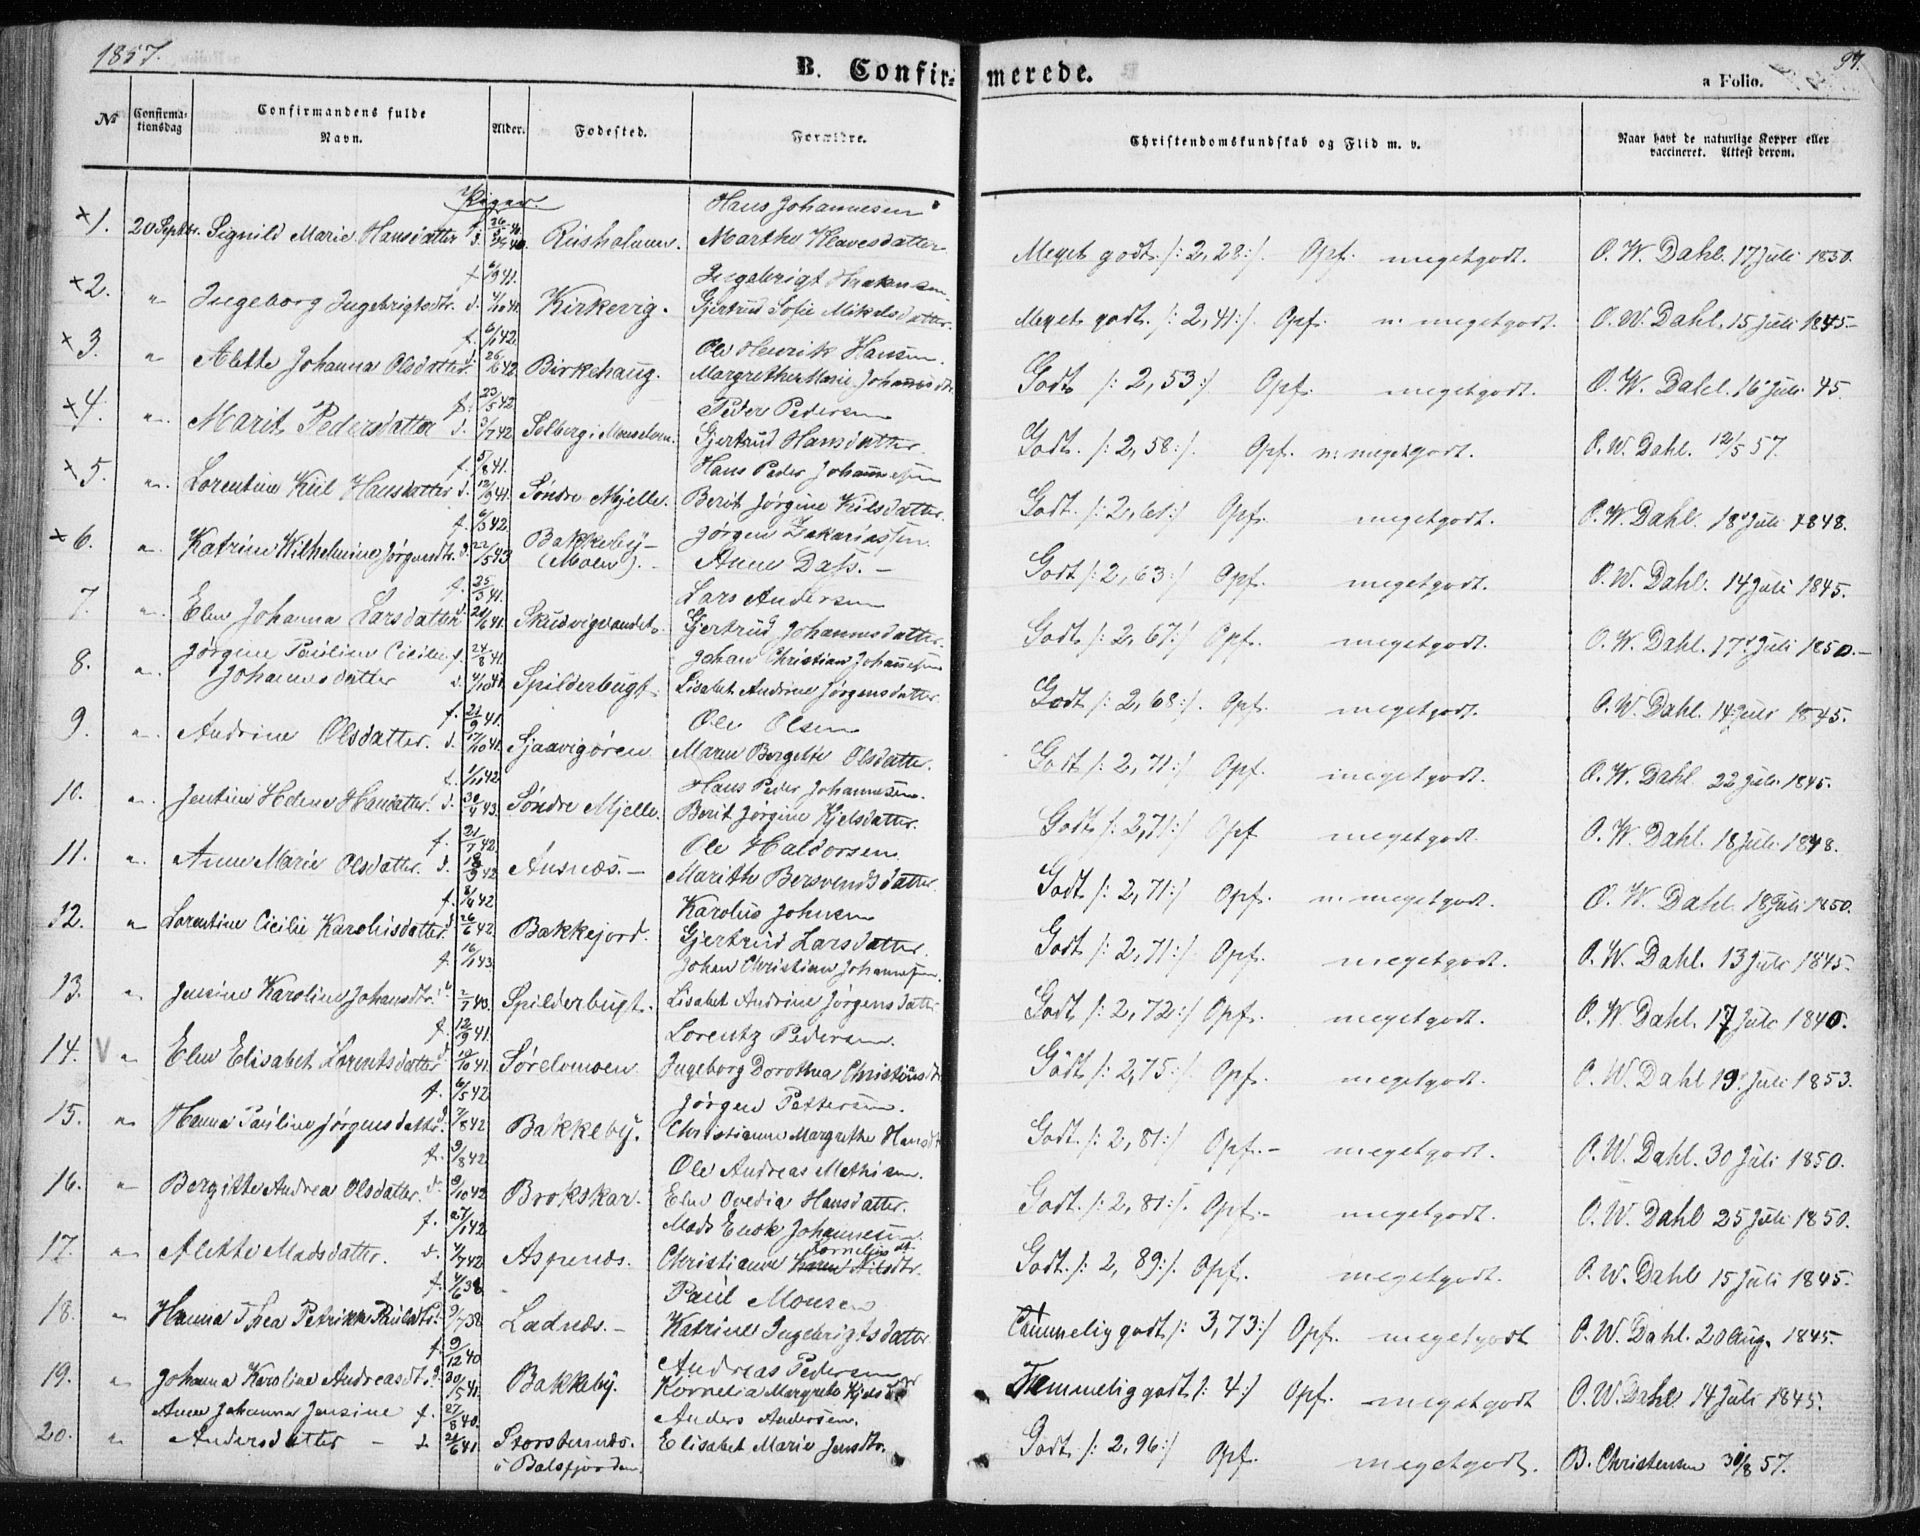 1857.
B. Confirmerede.
97.
a Folio.
No
Confirmationsdag
Confirmandens fulde Navn.
Alder.
Fødested.
Forældre.
Christendomskundskab og Flid m. v.
Naar havt de naturlige Kopper eller vaccineret. Attest derom.
Piger.
Hans Johannesen
×1. 20 Septbr. Signild Marie Hansdatter Riisholmen. Marthe Meget godt /: 2,28:/. Opf. megetgodt. O. W. Dahl. 17 Juli 1850.
f. 41. Ingebrigt
×2. " Ingeborg Ingebrigtsdtr. d. 4/10 41. Kirkevig. Gjertrud Sofie Mikelsdatter. Meget godt. /: 2,41:/. Opf. m: megetgodt. O. W. Dahl. 15 Juli 1845.
f. 6/1 42. Ole Henrik Hansen.
×3. " Alette Johanna Olsdatter. d. 26/6 42. Birkehaug. Margrethe Marie Johannesdtr. Godt /: 2,53:/ Opf. megetgodt. O. W. Dahl. 16 Juli 45.
f. 23/5 42. Peder Pedersen
×4. " Marit Pedersdatter d. 3/7 42. Solberg i Gjertrud Hansdatter. Godt. /: 2,58:/. Opf. m: megetgodt. O. W. Dahl. 12/5 57.
f. 5/8 41. Hans Peder Johannesen
×5. " Lorentine Kiil Hansdatter d. 12/9 41. Søndre Mjelle. Berit Jørgine Kiilsdatter. Godt. /: 2,61:/ Opf. megetgodt. O. W. Dahl. 18 Juli 1848.
f. 6/3 42. Bakkeby Jørgen Zakariassen.
×6. " Katrine Wilhelmine Jørgensdtr. d. 22/5 43 (Moen). Anne Dass. Godt /: 2,63:/ Opf. megetgodt. O. W. Dahl. 14 Juli 1845.
f. 25/3 41. Lars Andersen
7. " Elen Johanna Larsdatter d. 21/6 41. Skudvigvandet. Gjertrud Johannesdatter. Godt /: 2,67:/ Opf. megetgodt. O. W. Dahl. 17 Juli 1850.
Jørgine Pauline Cicilie f. 24/8 41. Johan Christian Johannesen
8. " Johannesdatter d. 4/10 41. Spilderbugt. Lisabet Andrine Jørgensdatter. Godt /: 2,68:/. Opf. megetgodt. O. W. Dahl. 14 Juli 1845.
f. 21/9 41. Ole Olsen
9. " Andrine Olsdatter. d. 17/10 41. Sjaavigøren. Maren Bergitte Olsdatter. Godt /: 2,71:/ Opf. megetgodt. O. W. Dahl 22 Juli 1845.
f. 1/11 42. Hans Peder Johannesen.
10. " Jentine Helene Hansdatter. d. 30/4 43. Søndre Mjelle. Berit Jørgine Kjelsdatter. Godt /: 2,71:/ Opf megetgodt. O. W. Dahl. 18 Juli 1848.
f. 21/7 42. Ole Haldorsen
11. " Anne Marie Olsdatter. d. 18/9 42. Ansnæs. Marithe Bersvendsdatter. Godt /: 2,71:/ Opf. m: megetgodt. O. W. Dahl. 18 Juli 1850.
f. 42 Karolus Johnsen
12. " Lorentine Cicilie Karolusdatter. d. 26/6 42. Bakkejord. Gjertrud Larsdatter. Godt /: 2,71:/ Opf. megetgodt. O. W. Dahl. 13 Juli 1845.
f. 16/1 43. Johan Christian Johannesen.
13. " Jensine Karoline Johansdtr. 2/7 43. Spilderbugt. Lisabet Andrine Jørgensdatter Godt /: 2,72:/ Opf. megetgodt. O. W. Dahl. 17 Juli 1840.
f. 12/9 41. Lorentz Pedersen.
14. V " Elen Elisabet Lorentsdatter d. 10/10 41. Sørelvmoen Ingeborg Dorothea Christiansdtr. Godt /: 2,75:/. Opf. megetgodt. O. W. Dahl 19 Juli 1853.
f. 6/5 42. Jørgen Pettersen.
15. " Hanna Pauline Jørgensdatter d. 7/8 42 Bakkeby. Christianne Margrethe Hansdtr Godt. /: 2,81:/ Opf. megetgodt. O. W. Dahl. 30 Juli 1850.
f. 9/8 42. Ole Andreas Mathisen.
16. " Bergitte Andrea Olsdatter. d. 9/10 42 Brokskar. Elen Ovedia Hansdatter. Godt /: 2,81:/. Opf. megetgodt. O. W. Dahl 25 Juli 1850.
f. 27/1 42. Mads Enok Johannesen
Cornelius dt.
17. " Alette Madsdatter. d. 4/7 42 Aspenæs. Christianne Karen Nilsdtr. Godt. /: 2,89:/. Opf. megetgodt. O. W. Dahl 15 Juli 1845.
f. 4/6 38 Paul Monsen
18. " Hanna Thea Petrikke Paulsdtr. 9/7 38 Ladnæs. Katrine Ingebrigtsdatter. Temmelig godt /: 3,73:/ Opf. megetgodt O. W. Dahl. 20 Aug. 1845.
f. 9/12 40 Andreas Pedersen
19. " Johanna Karoline Andreasdt. d. 30/5 41. Bakkeby. Kornelia Margrete Kjelsdtr Temmelig godt /: 4:/ Opf. megetgodt O. W. Dahl 14 Juli 1845.
Anne Johanna Jensine f. 27/8 40. Anders Andersen.
20. " Andersdatter d. 21/6 41. Storstennæs. Elisabet Marie Jensdtr. Godt /: 2,96:/ Opf. megetgodt. B. Christensen 30/8 57.
i Balsfjorden.